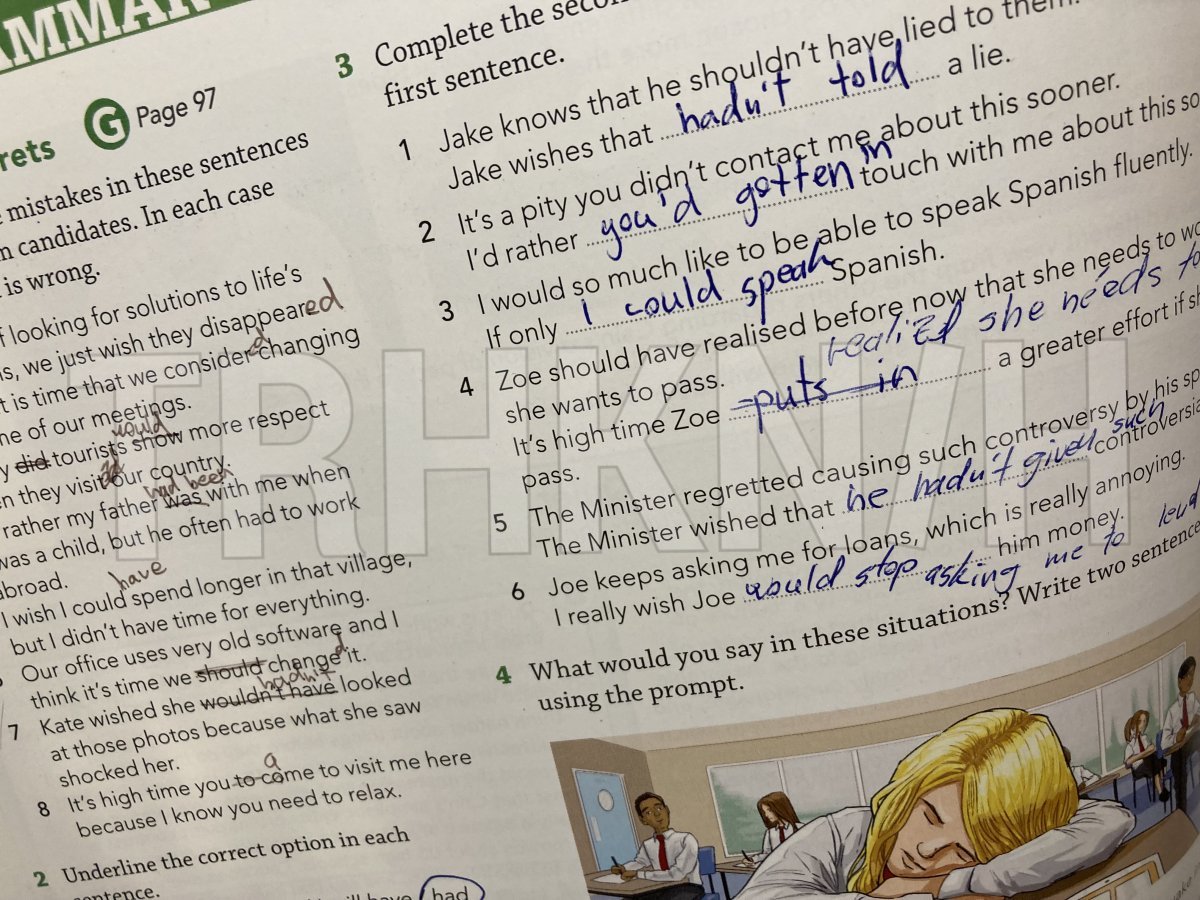 AMMAR
rets G Page 97
mistakes in these sentences
candidates. In each case
is wrong.
looking for solutions to life's
we just wish they disappeared
is time that we considerd changing
of our meetings.
would
did tourists show more respect
they visit our country.
had been
rather my father was with me when
was a child, but he often had to work
abroad.
have
I wish I could spend longer in that village,
but I didn't have time for everything.
Our office uses very old software and I
think it's time we should changed it.
hadn't
7 Kate wished she wouldn't have looked
at those photos because what she saw
shocked her.
a
8 It's high time you to come to visit me here
because I know you need to relax.
2 Underline the correct option in each
sentence.
had
3 Complete the
first sentence.
1 Jake knows that he shouldn't have lied to them.
Jake wishes that hadn't told a lie.
2 It's a pity you didn't contact me about this sooner.
I'd rather you'd gotten in touch with me about this
3 I would so much like to be able to speak Spanish fluently.
If only I could speak Spanish.
4 Zoe should have realised before now that she needs to
she wants to pass.
realized she needs to
It's high time Zoe puts in a greater effort if
pass.
5 The Minister regretted causing such controversy by his
The Minister wished that he hadn't given such
6 Joe keeps asking me for loans, which is really annoying.
I really wish Joe would stop asking me to lend him money.
4 What would you say in these situations? Write two
using the prompt.
TRHKNVH